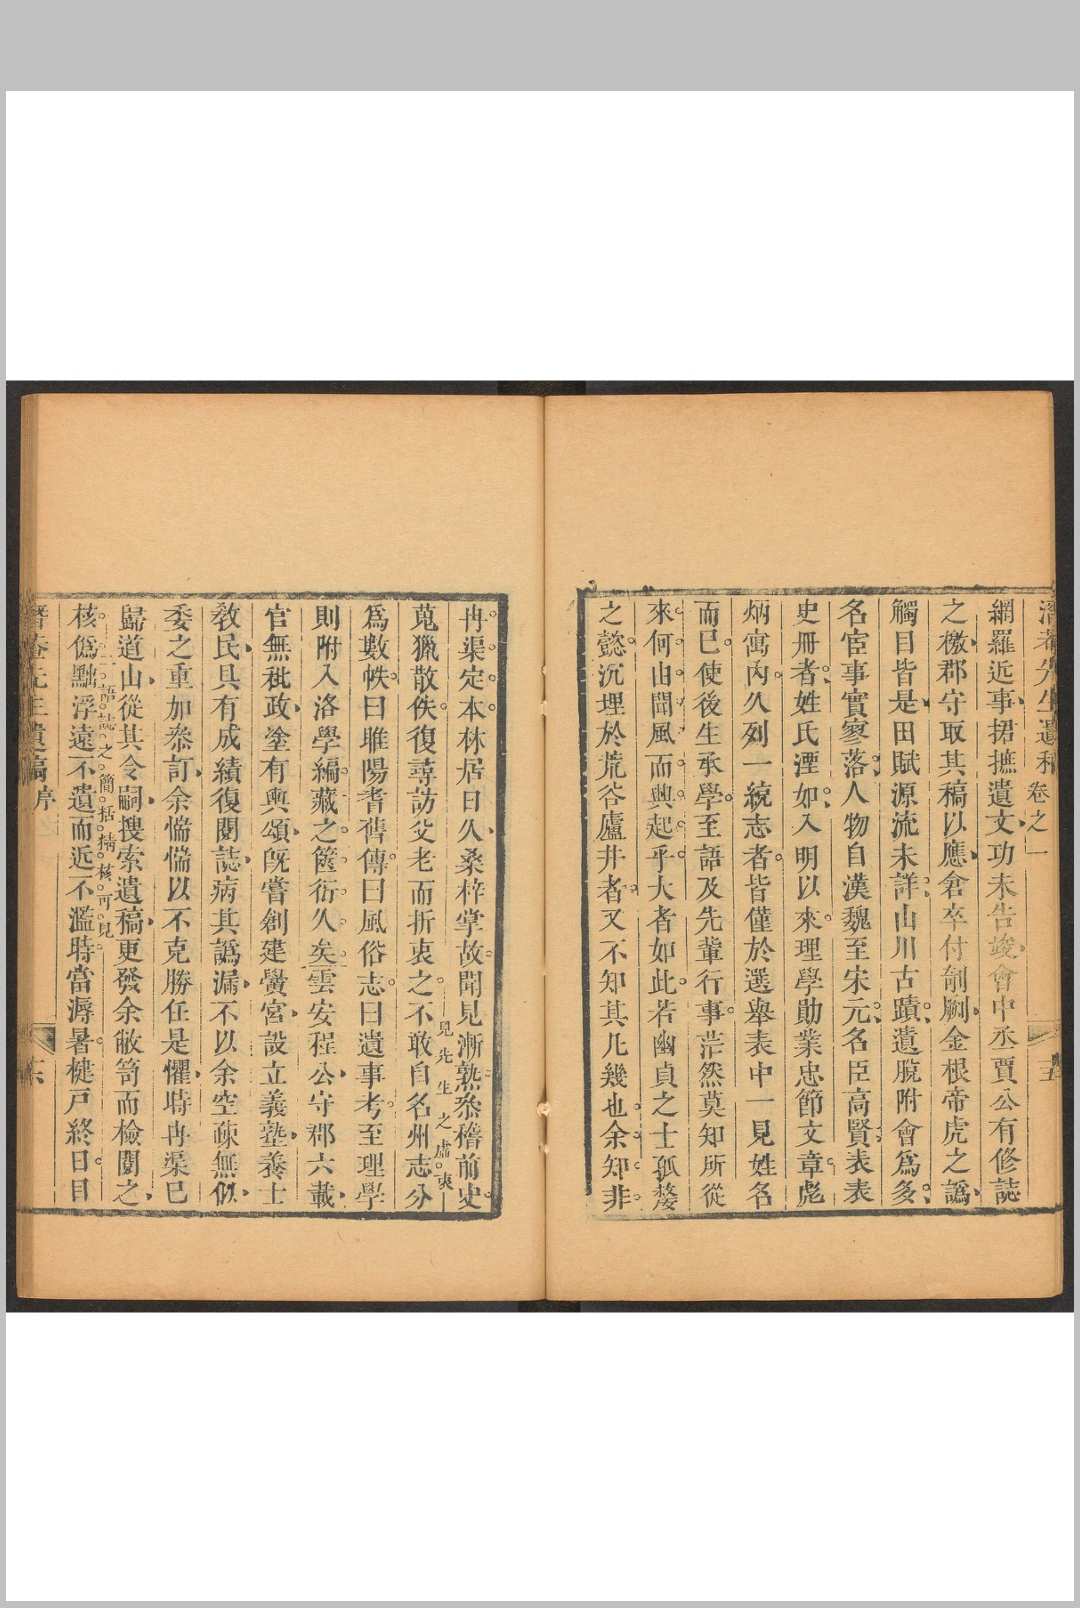 先生遺稿 卷之一 五
網羅近事捃摭遺文功未告竣會中丞賈公有修誌
之檄郡守取其稿以應倉卒付剞劂金根帝虎之譌
觸目皆是田賦源流未詳山川古蹟遺脫附會爲多
名宦事實寥落人物自漢魏至宋元名臣高賢表表
史冊者姓氏湮如入明以來理學勛業忠節文章彪
炳寓內久列一統志者皆僅於選舉表中一見姓名
而已使後生承學至語及先輩行事茫然莫知所從
來何由聞風而興起乎大者如此若幽貞之士孤嫠
之懿沉埋於荒谷廬井者又不知其凡幾也余知非
冉渠定本林居日久桑梓掌故聞見漸熟叅稽前史
蒐獵散佚復尋訪父老而折衷之不敢自名州志分
見先生之虛衷
爲數帙曰睢陽耆舊傳曰風俗志曰遺事考至理學
則附入洛學編藏之篋衍久矣雲安程公守郡六載
官無秕政塗有輿頌旣嘗創建黌宮設立義塾養士
敎民具有成績復閱誌病其譌漏不以余空疎無似
委之重加叅訂余惴惴以不克勝任是懼時冉渠已
歸道山從其令嗣搜索遺稿更發余敝笥而檢閱之
二語誌之簡括精核可見
核僞黜浮遠不遺而近不濫時當溽暑楗戸終日目
先生遺稿 序 六